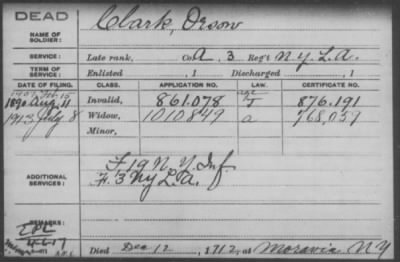 DEAD
NAME OF SOLDIER: Clark, Orson
SERVICE: Late rank, Co. A, 3 Reg't N.Y. L.A.
TERM OF SERVICE: Enlisted , 1 Discharged , 1
DATE OF FILING. CLASS. APPLICATION NO. LAW. CERTIFICATE NO.
1907 Feb 15 age
1890 Aug. 11 Invalid, 861.078 J 876.191
1913 July 8 Widow, 1010849 a 768,039
Minor,
ADDITIONAL SERVICES: F 19 N.Y. Inf
F. 3 Ny L.A.
REMARKS:
4-6-17
Died Dec 12, 1912, at Moravia NY